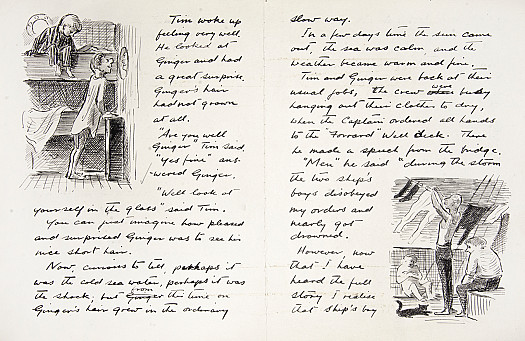 Tim woke up
feeling very well.
He looked at
Ginger and had
a great surprise.
Ginger's hair
had not grown
at all.
"Are you well
Ginger" Tim said.
"Yes fine" ans-
wered Ginger.
"Well look at
yourself in the glass" said Tim.
You can just imagine how pleased
and surprised Ginger was to see his
nice short hair.
Now, curious to tell, perhaps it
was the cold sea water, perhaps it was
the shock, but from the time on
Ginger's hair grew in the ordinary
slow way.
In a few days time the sun came
out, the sea was calm, and the
weather became warm and fine.
Tim and Ginger were back at their
usual jobs, the crew were busy
hanging out their clothes to dry,
when the Captain ordered all hands
to the Forward Well Deck. There
he made a speech from the bridge.
"Men" he said "during the storm
the two ship's
boys disobeyed
my orders and
nearly got
drowned.
However, now
that I have
heard the full
story I realise
that ship's boy